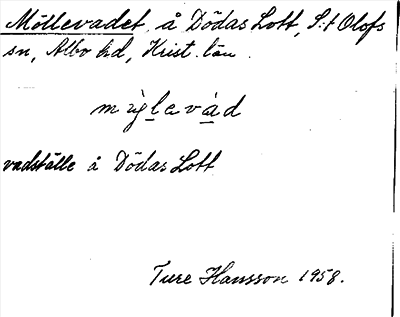 Möllevadet, å Dödas Lott, S:t Olofs
sn, Albo hd, Krist. län.
vadställe å Dödas Lott
Ture Hansson 1958.